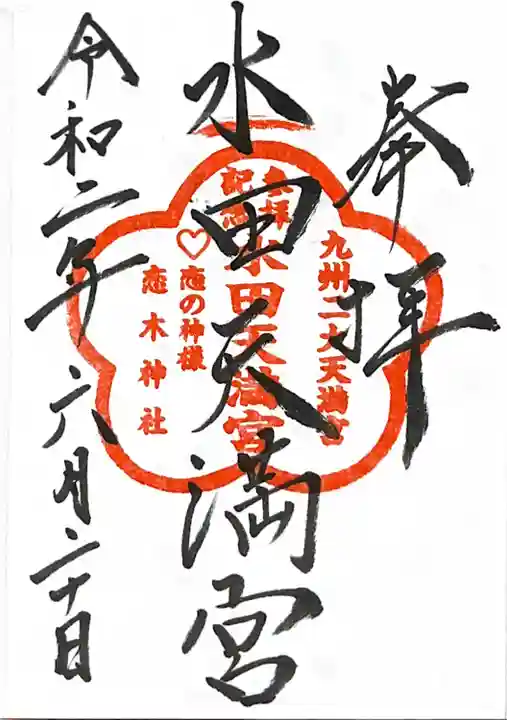 奉拝
水田天満宮
令和二年六月二十日
九州二大天満宮
参拝
記念
水田天満宮
♡恋の神様
恋木神社